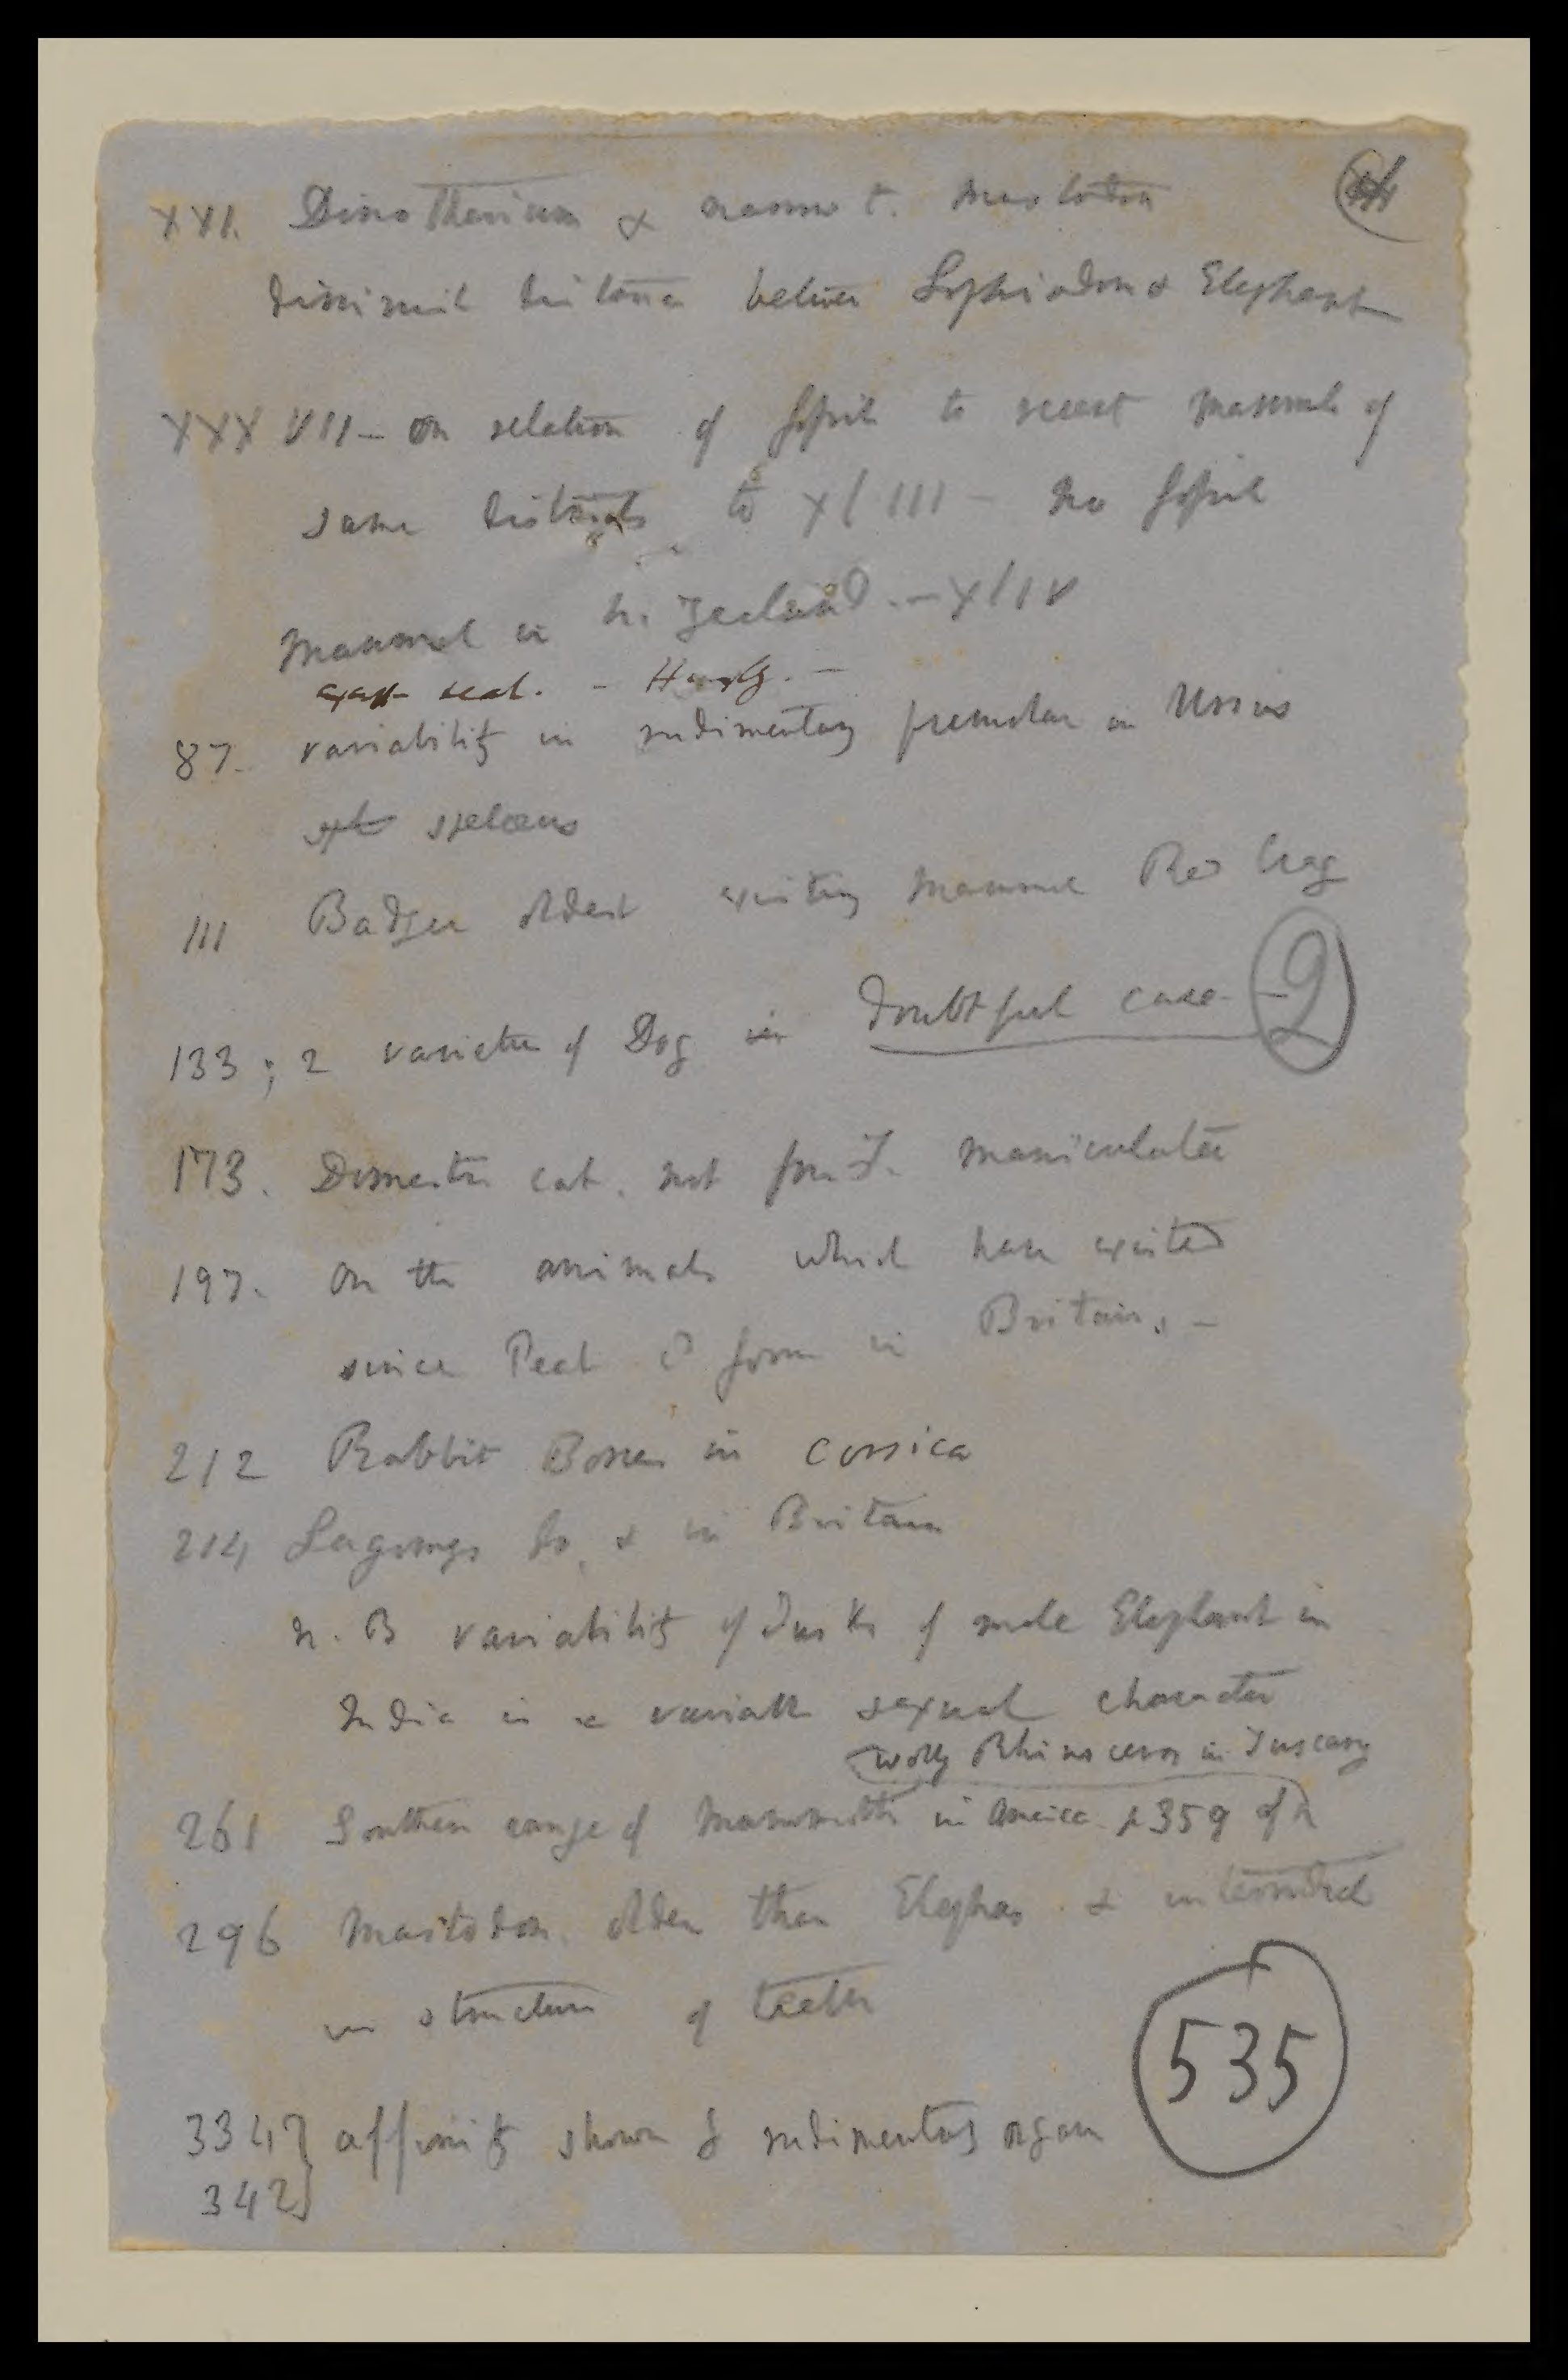 XXI. Dinotherium & narrow t. Mastodon
diminish distance between Lophiodon & Elephant
XXXVII — on relation of fossil to recent Mammals of
same districts to XLIII — No fossil
Mammal in N. Zealand. — XLIV
except seal. —
87. variability in rudimentary premolar in Ursus
spelæus
111 Badger oldest existing Mammal Red Crag
133; 2 varieties of Dog in doubtful case —
173. Domestic cat. not from F. maniculata
197. On the animals which have existed
since Peat form in Britain. —
212 Rabbit Bones in Corsica
214 Lagomys do. & in Britain
N.B variability of Tusks of male Elephant in
India is a variable sexual character
Wolly Rhinoceros in Tuscany
261 Southern range of Mammoth in America p 359 of
296 Mastodon older than Elephas & intermed
in structure of teeth
535
334 } affinity shown by rudimentary organ
342 }